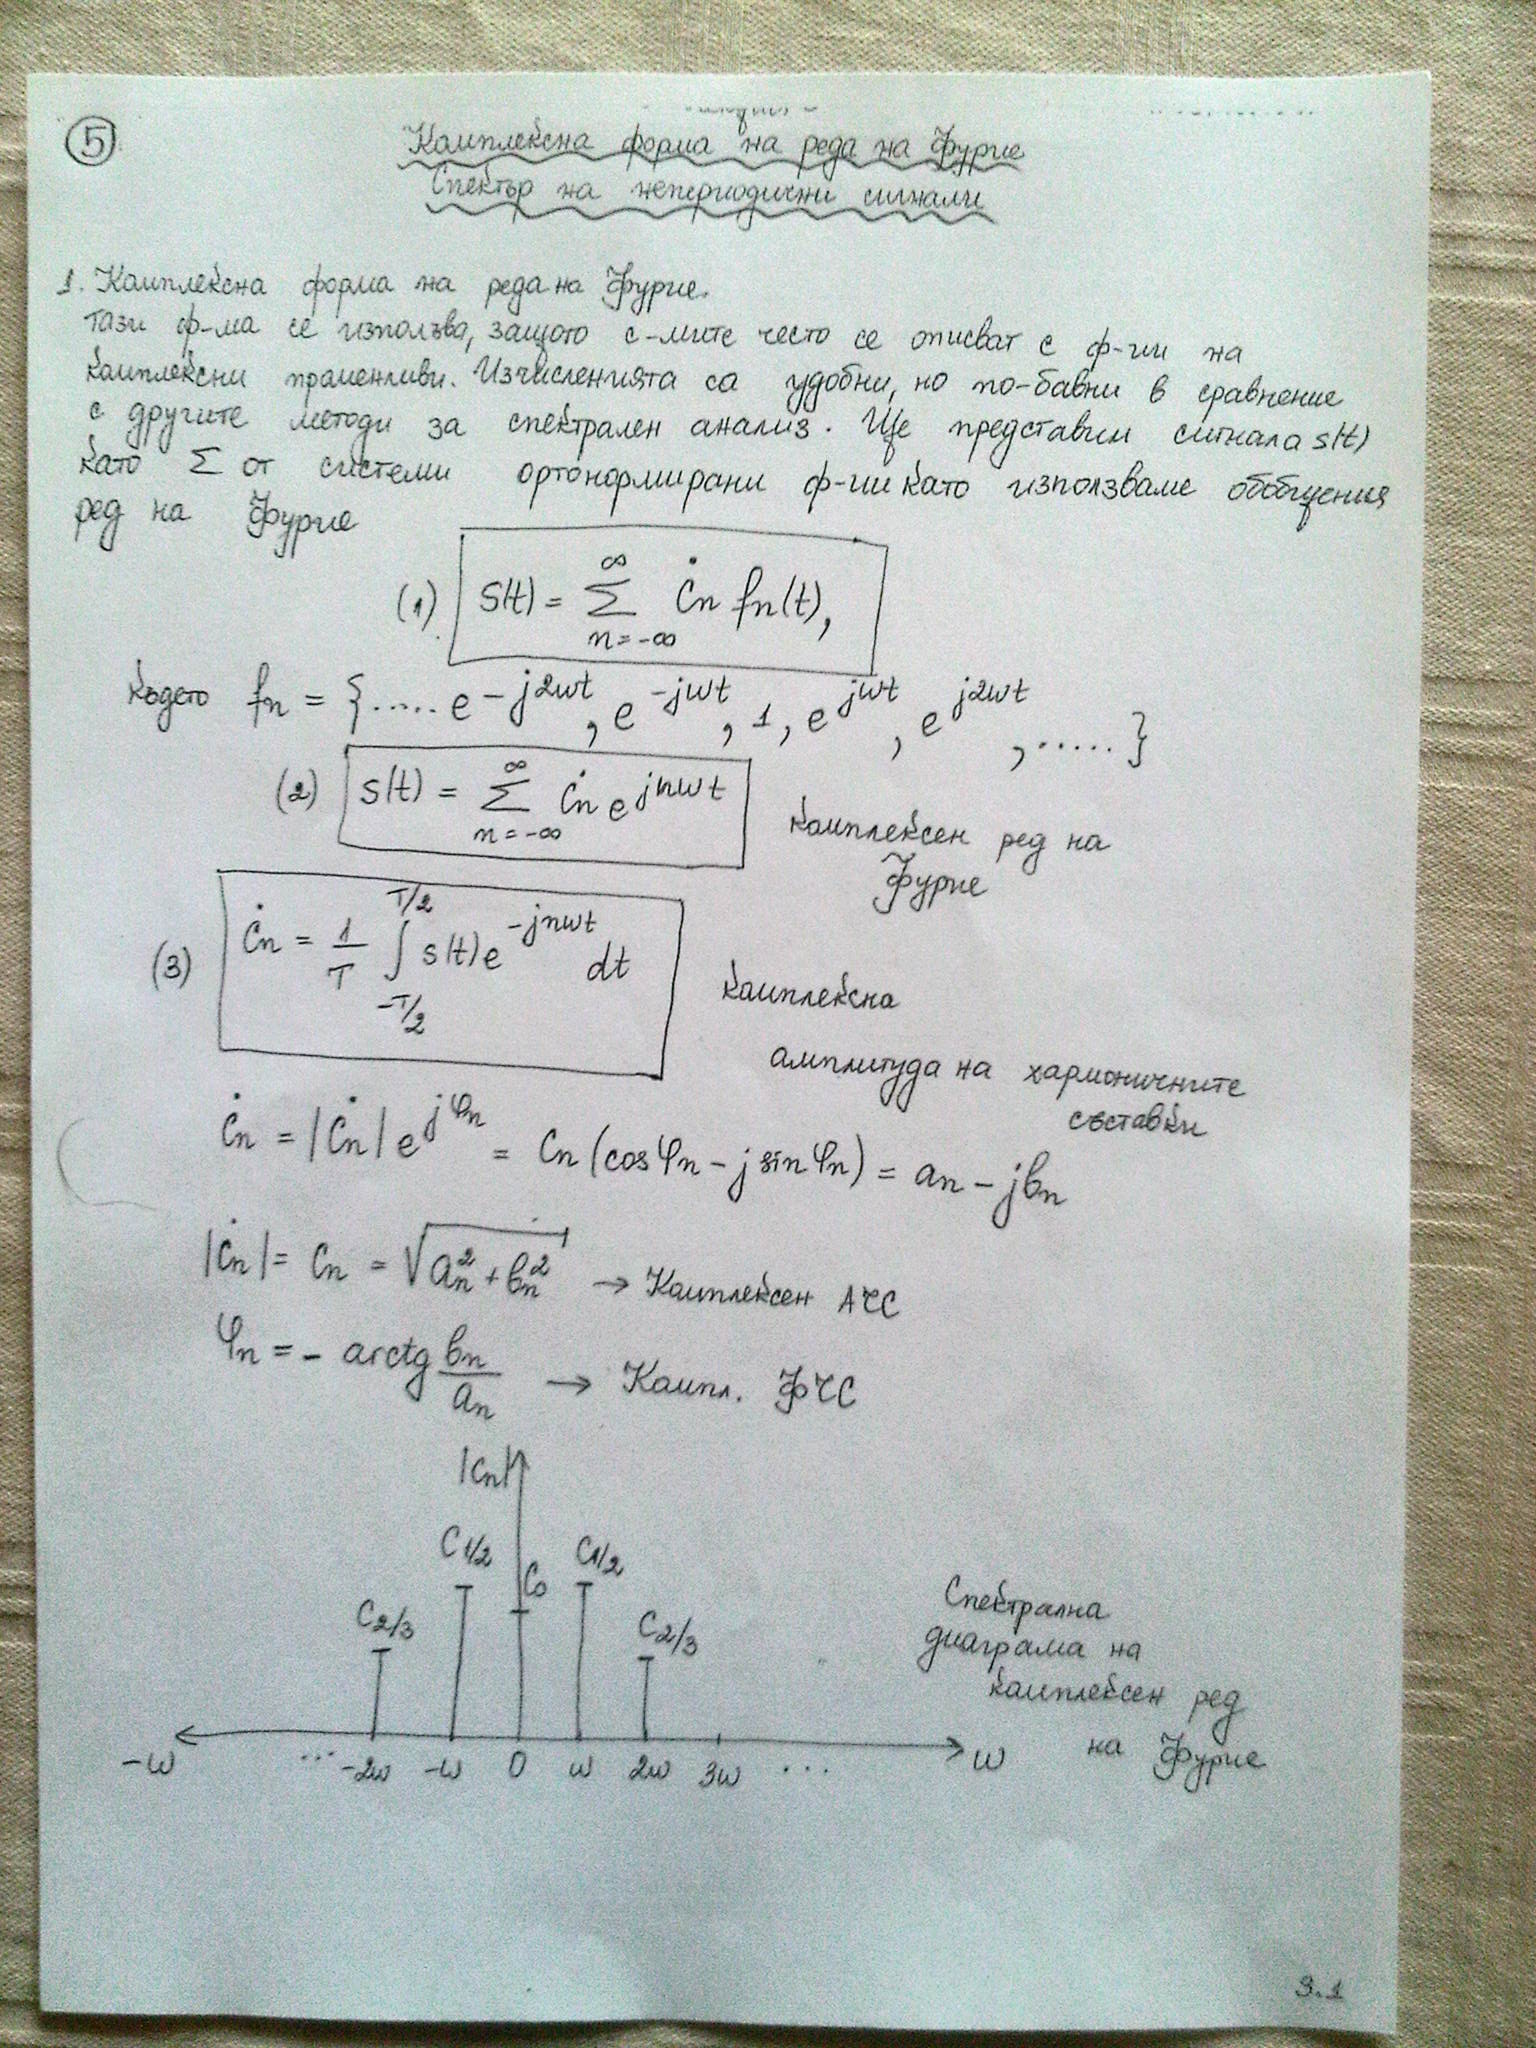 5
Комплексна форма на реда на Фурие
Спектър на непериодични сигнали
1. Комплексна форма на реда на Фурие.
Тази ф-ма се използва, защото с-мите често се описват с ф-ии на
комплексни променливи. Изчисленията са удобни, но по-бавни в сравнение
с другите методи за спектрален анализ. Ще представим сигнала s(t)
като Σ от системи ортонормирани ф-ии като използваме обобщения
ред на Фурие
(1) S(t) = Σ_{n=-∞}^{∞} Ċn fn(t),
където fn = {..... e^{-j2ωt}, e^{-jωt}, 1, e^{jωt}, e^{j2ωt}, .....}
(2) s(t) = Σ_{n=-∞}^{∞} Ċn e^{jnωt}
комплексен ред на
Фурие
(3) Ċn = 1/T ∫_{-T/2}^{T/2} s(t) e^{-jnωt} dt
комплексна
амплитуда на хармоничните
съставки
Ċn = |Ċn| e^{jφn} = Cn (cosφn - j sinφn) = an - jbn
|Ċn| = Cn = √(an² + bn²) → Комплексен АЧС
φn = - arctg bn/an → Компл. ФЧС
|Cn|
C1/2 C0 C1/2
C2/3 C2/3
Спектрална
диаграма на
комплексен ред
на Фурие
-ω ... -2ω -ω 0 ω 2ω 3ω ... ω
3.1